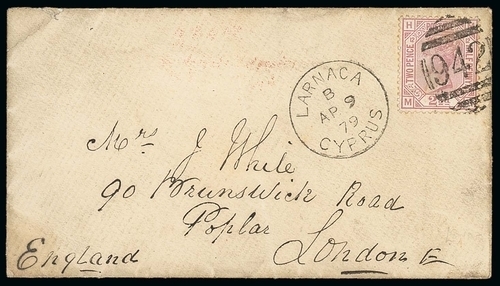 H
TWO PENCE
M
942
LARNACA
B
AP 9
79
CYPRUS
Mrs J While
90 Brunswick Road
Poplar
London E
England